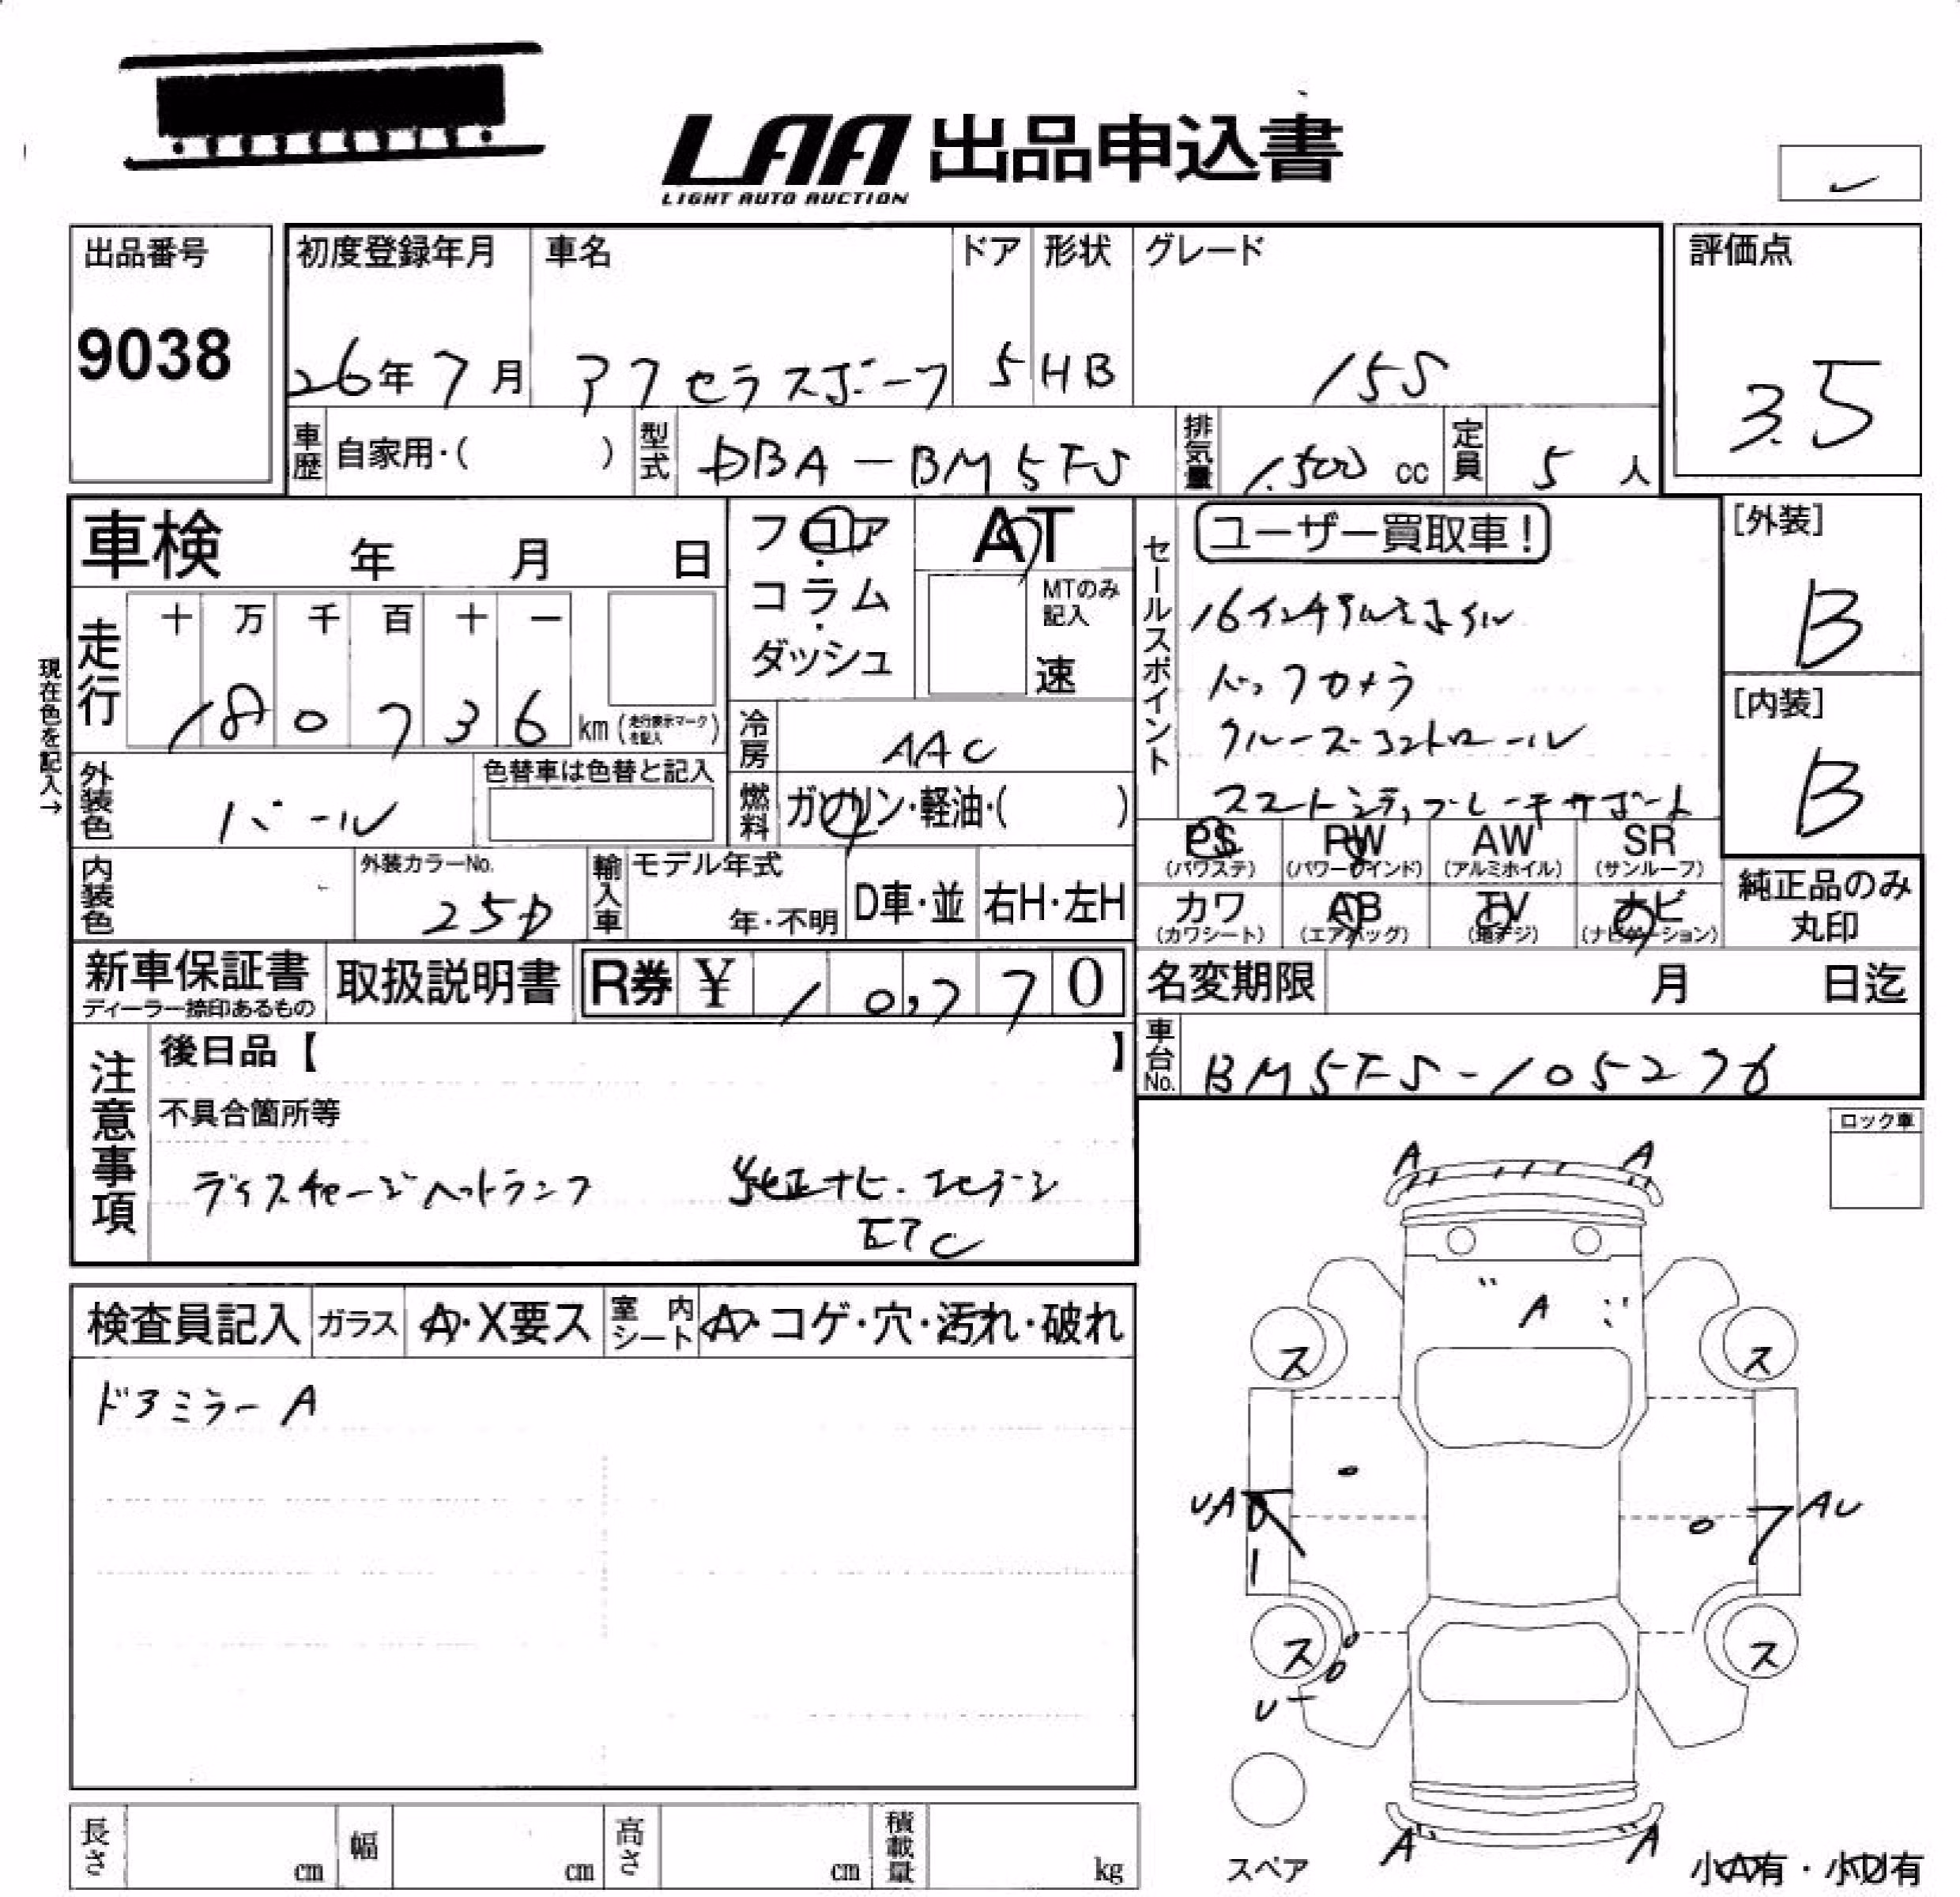 LAA 出品申込書
LIGHT AUTO AUCTION
出品番号 9038
初度登録年月 26年7月
車名 アクセラスポーツ
ドア 5
形状 HB
グレード 15S
評価点 3.5
車歴 自家用・( )
型式 DBA-BM5FS
排気量 1,500 cc
定員 5人
車検 年 月 日
フロア・コラム・ダッシュ
AT
MTのみ記入
速
セールスポイント
ユーザー買取車!
16インチアルミホイル
バックカメラ
クルーズコントロール
スマートシティブレーキサポート
[外装] B
[内装] B
現在色を記入→
走行 十 万 千 百 十 一
180736 km (走行表示マークを記入)
冷房 AAC
燃料 ガソリン・軽油・( )
外装色 パール
色替車は色替と記入
内装色
外装カラーNo. 25D
輸入車 モデル年式 年・不明
D車・並 右H・左H
PS (パワステ)
PW (パワーウインド)
AW (アルミホイル)
SR (サンルーフ)
カワ (カワシート)
AB (エアバッグ)
TV (地デジ)
ナビ (ナビゲーション)
純正品のみ丸印
新車保証書 ディーラー捺印あるもの
取扱説明書
R券 ¥ 10,770
名変期限 月 日迄
車台No. BM5FS-105276
注意事項
後日品【 】
不具合箇所等
ディスチャージヘットランプ 純正ナビ.
ETC
ロック車
検査員記入 ガラス A・X要ス 室内シート A・コゲ・穴・汚れ・破れ
ドアミラー A
A A
A
ス ス
UA AU
ス ス
U
A A
スペア
小A有・小U有
長さ cm 幅 cm 高さ cm 積載量 kg